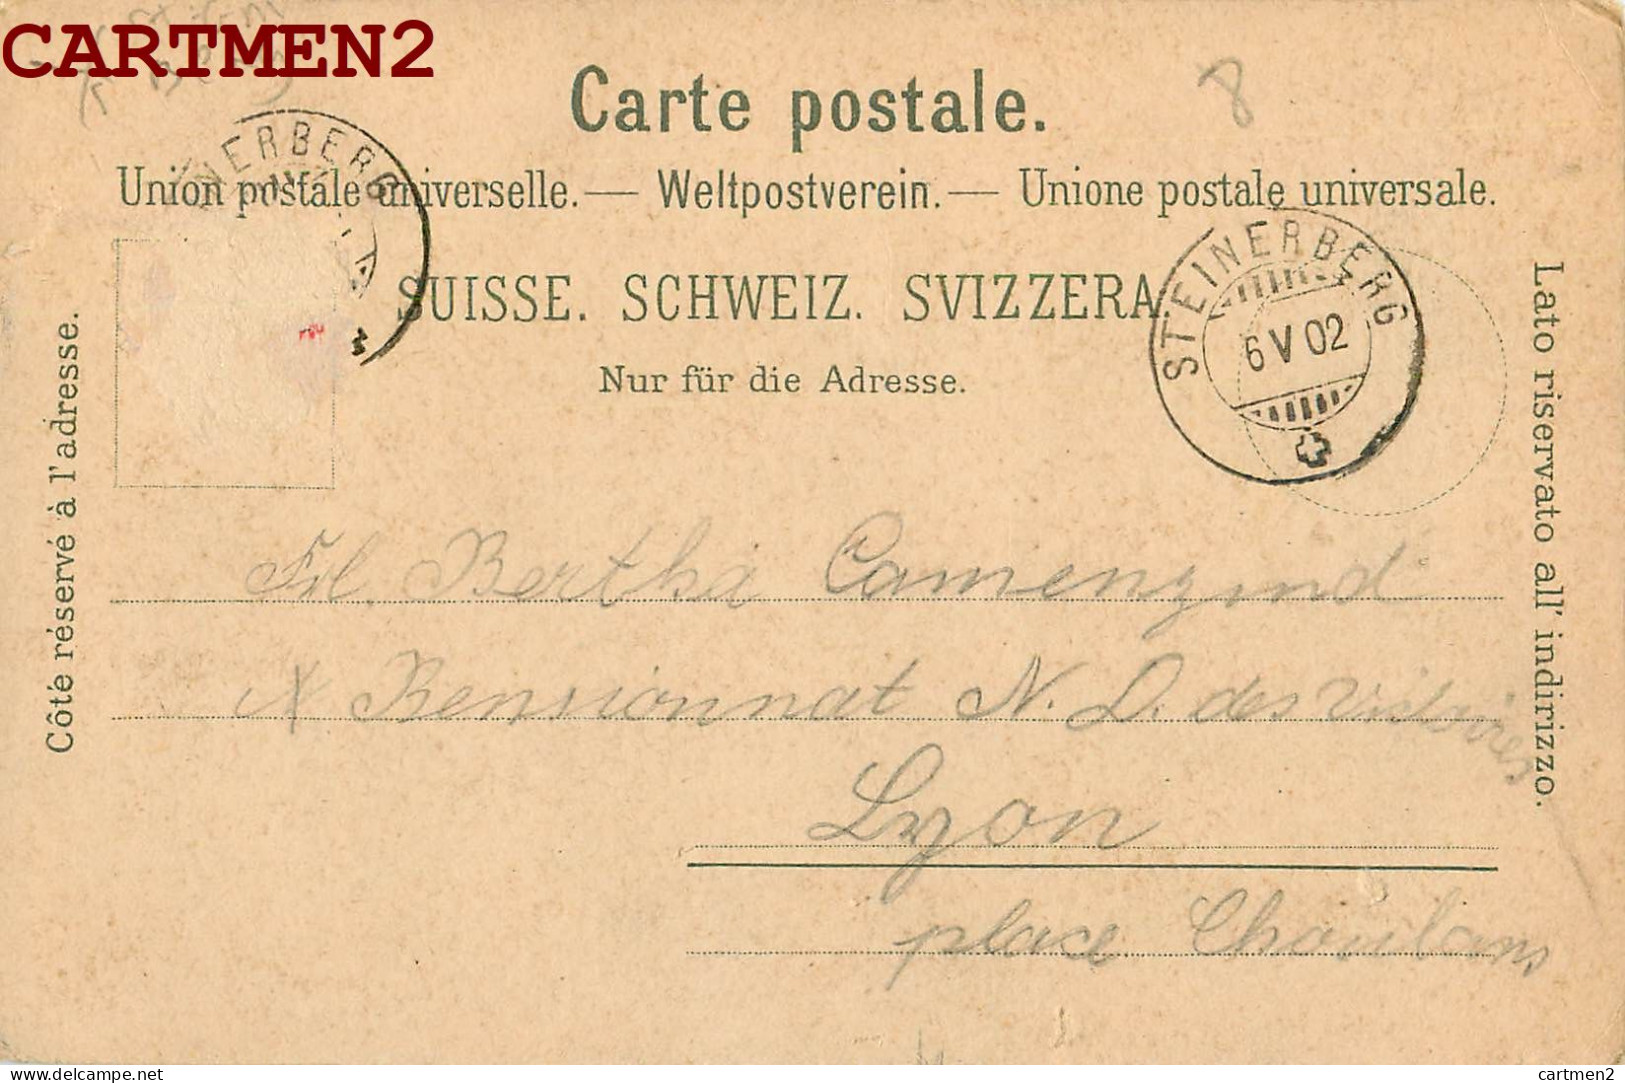 CARTMEN2
8
Carte postale.
Union postale universelle. — Weltpostverein. — Unione postale universale.
NERBERG
SUISSE. SCHWEIZ. SVIZZERA.
STEINERBERG
6 V 02
Nur für die Adresse.
Côté réservé à l'adresse.
Lato riservato all' indirizzo.
Frl. Bertha Camenzind
Pensionnat N. D. des
Lyon
place Choulans
Delcampe.net
cartmen2